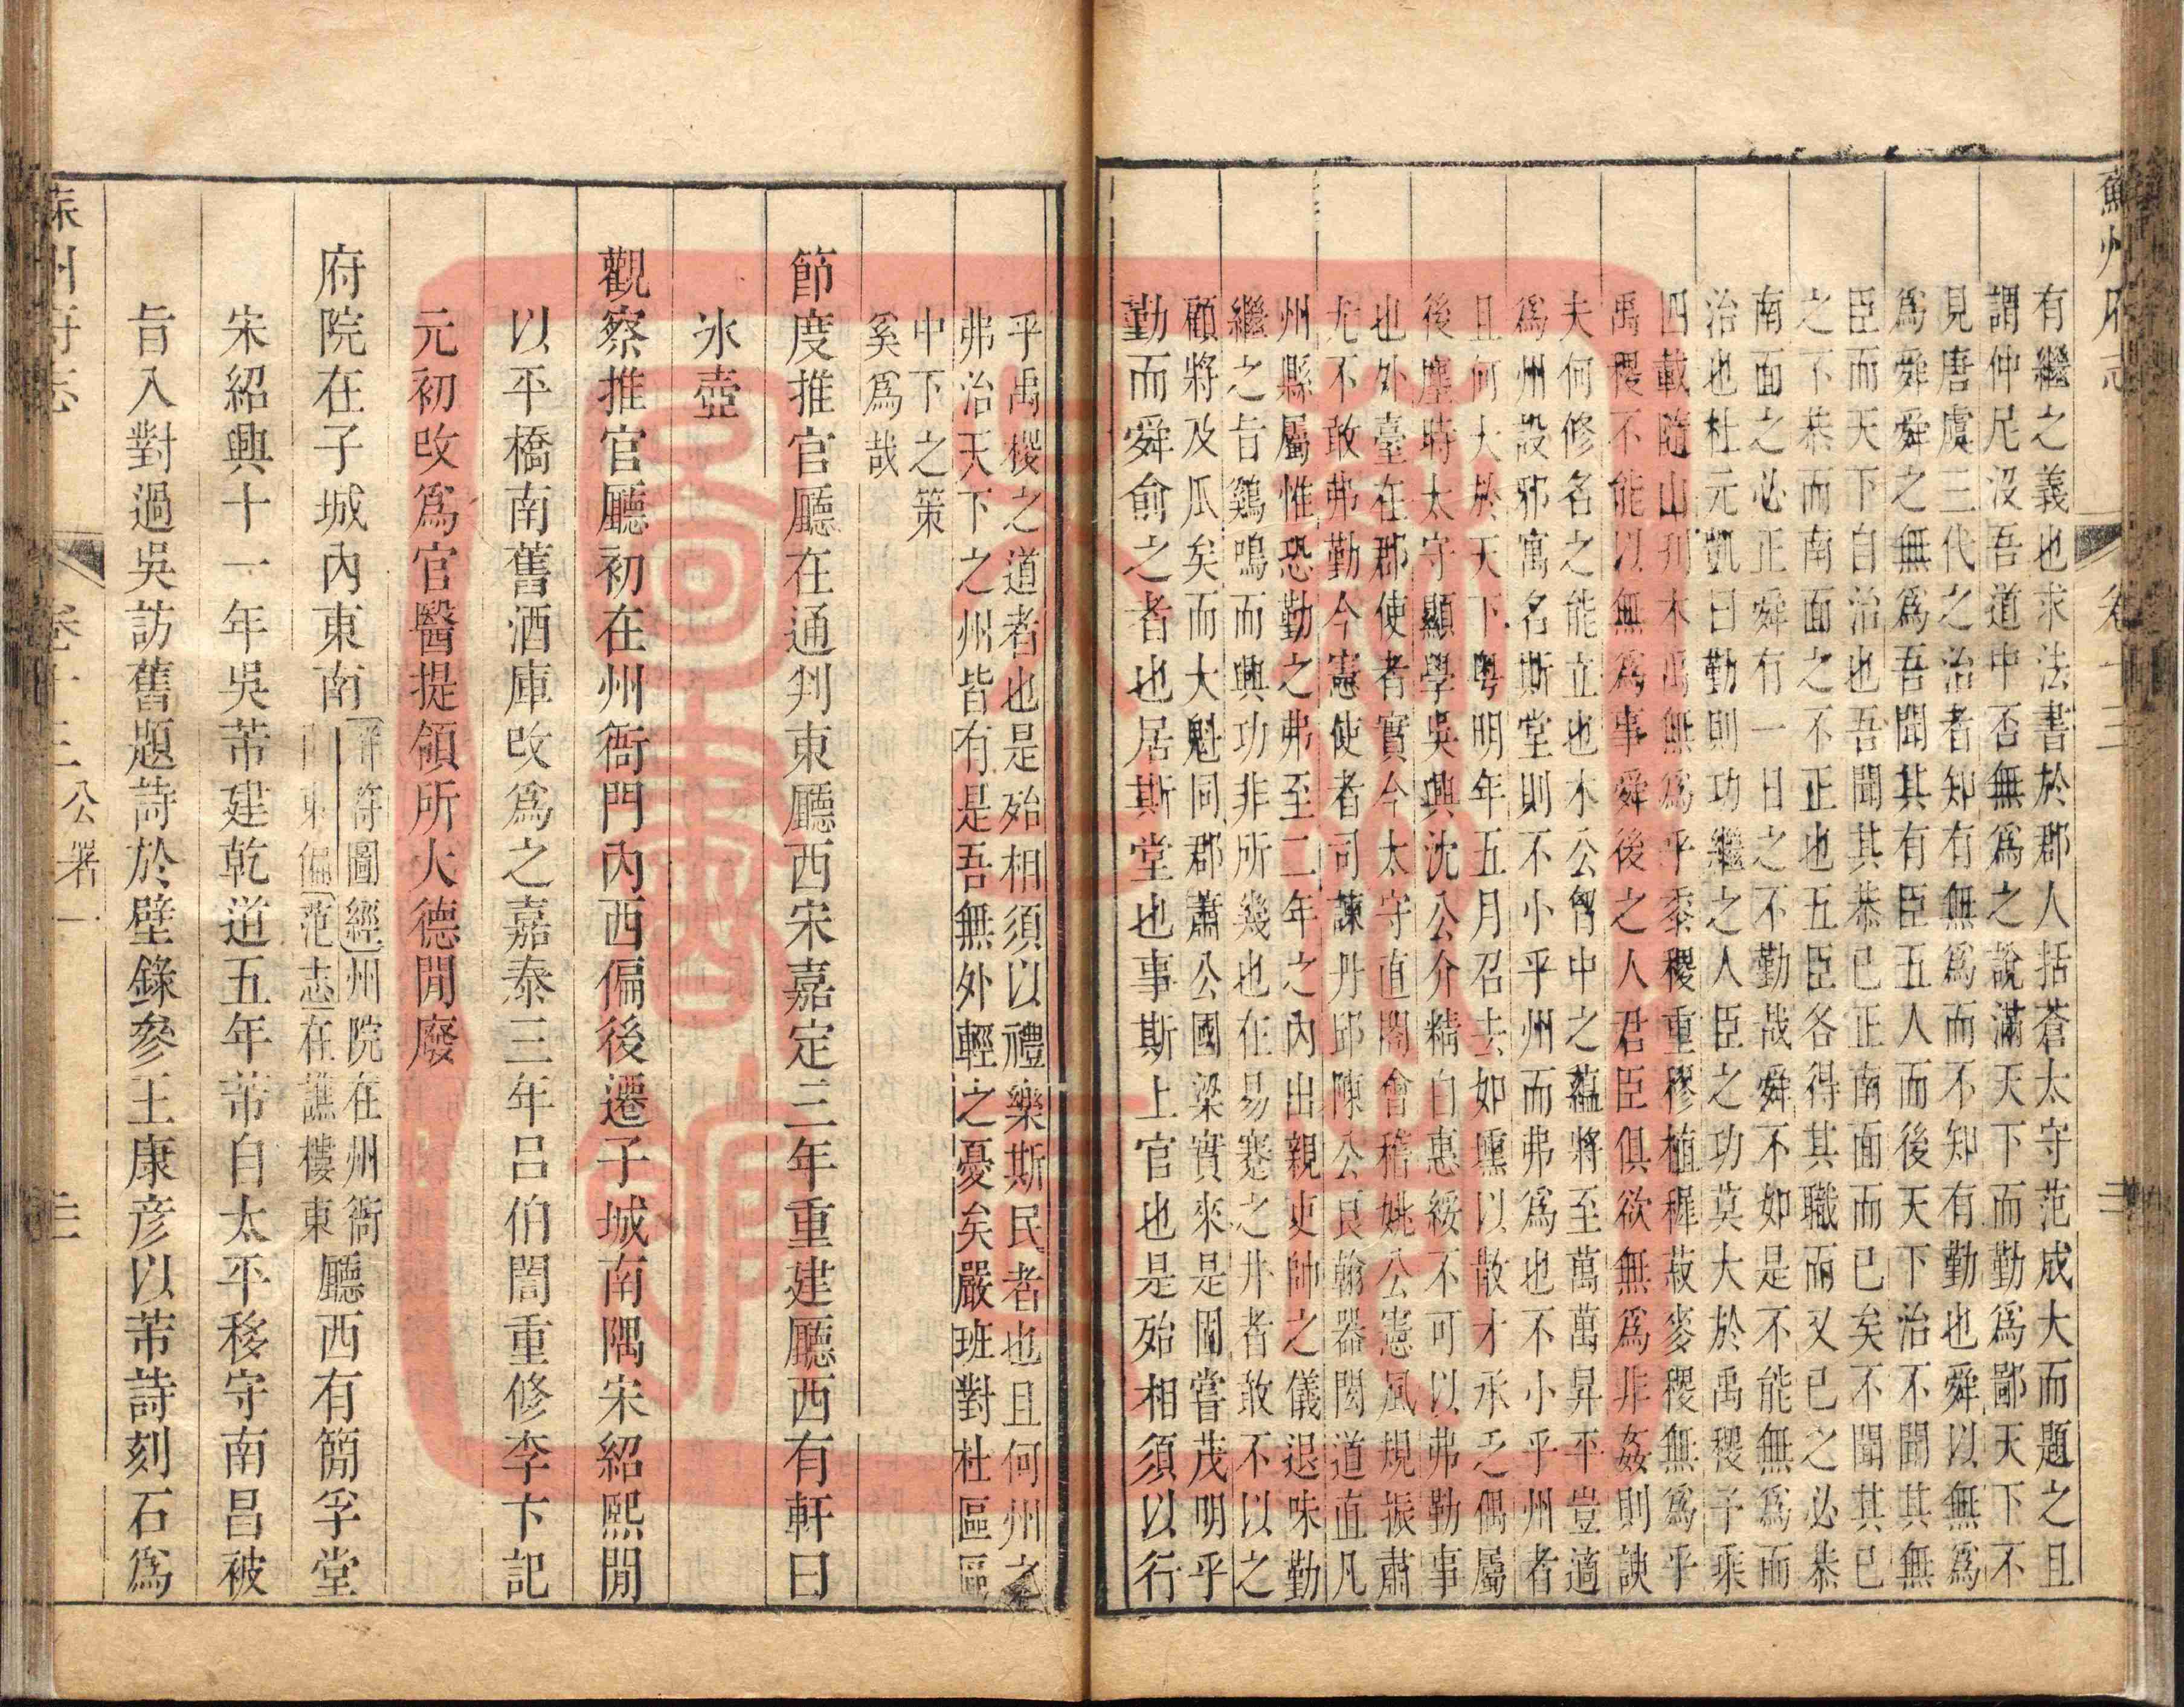 有繼之義也求法書於郡人括蒼太守范成大而題之且
謂仲尼沒吾道中否無為之說滿天下而勤為鄙天下不
見唐虞三代之治者知有無為而不知有勤也舜以無為
為舜舜之無為吾聞其有臣五人而後天下治不聞其無
臣而天下自治也吾聞其恭已正南面而已矣不聞其已
之不恭而南面之不正也五臣各得其職而又已之必恭
南面之必正舜有一日之不勤哉舜不如是不能無為而
治也杜元凱曰勤則功繼之人臣之功莫大於禹稷子乘
四載隨山刋木禹無為乎黍稷重穋植穉菽麥稷無為乎
禹稷不能以無為事舜後之人君臣俱欲無為非姦則諛
夫何修名之能立也木公胷中之蘊將至萬萬昇平豈適
為州設邪寓名斯堂則不小乎州而弗為也不小乎州者
且何大於天下粤明年五月召去如壎以散才承乏偶屬
後塵時太守顯學吳興沈公介精白惠綏不可以弗勤事
也外臺在郡使者實今太守直閣會稽姚公憲風規振肅
尤不敢弗勤今憲使者司諫丹邱陳公良翰器閎道直凡
州縣屬惟恐勤之弗至二年之內出親吏帥之儀退味勤
繼之旨鷄鳴而興功非所幾也在易蹇之井者敢不以之
顧將及瓜矣而大魁同郡蕭公國梁實來是圖嘗茂明乎
勤而舜俞之者也居斯堂也事斯上官也是殆相須以行
乎禹稷之道者也是殆相須以禮樂斯民者也且何州之
弗治天下之州皆有是吾無外輕之憂矣嚴班對杜區區
中下之策
奚為哉
節度推官廳在通判東廳西宋嘉定三年重建廳西有軒曰
氷壺
觀察推官廳初在州衙門內西偏後遷子城南隅宋紹熙閒
以平橋南舊酒庫改為之嘉泰三年呂伯闇重修李卞記
元初改為官醫提領所大德閒廢
府院在子城內東南祥符圖經州院在州衙
南東偏范志在譙樓東廳西有簡孚堂
宋紹興十一年吳芾建乾道五年芾自太平移守南昌被
旨入對過吳訪舊題詩於壁錄參王康彦以芾詩刻石為
蘇州府志 公署一